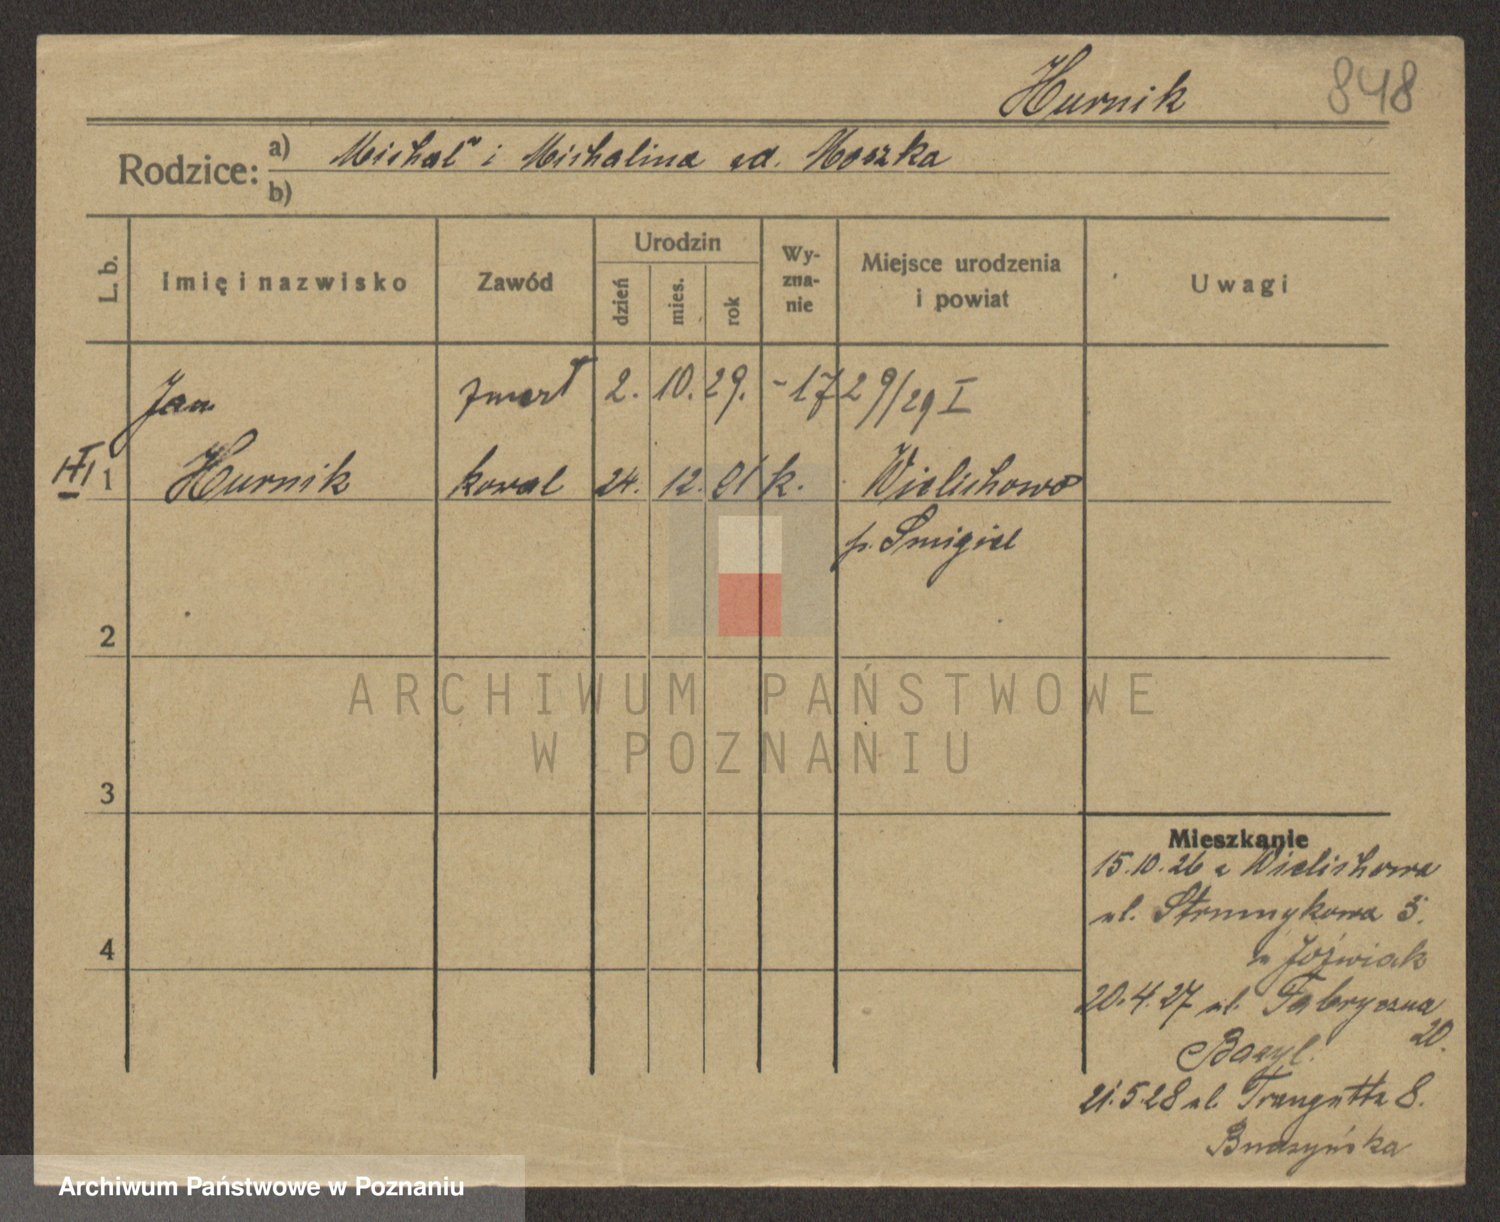 Hurnik 848
Rodzice: a) Michał i Michalina Moszka
b)
L. b. Imię i nazwisko Zawód Urodzin dzień mies. rok Wy-zna-nie Miejsce urodzenia i powiat Uwagi
Jan zmarł 2. 10. 29. - 1729/29 I
1 Hurnik kowal 24. 12. 01 k. Wielichowo
p. Śmigiel
2
ARCHIWUM PAŃSTWOWE
W POZNANIU
3
Mieszkanie
15.10.26 z Wielichowa
ul. Strumykowa 5.
Jóźwiak
20.4.27 ul. Fabryczna
20.
21.5.28 ul. Traugutta 8.
4
Archiwum Państwowe w Poznaniu